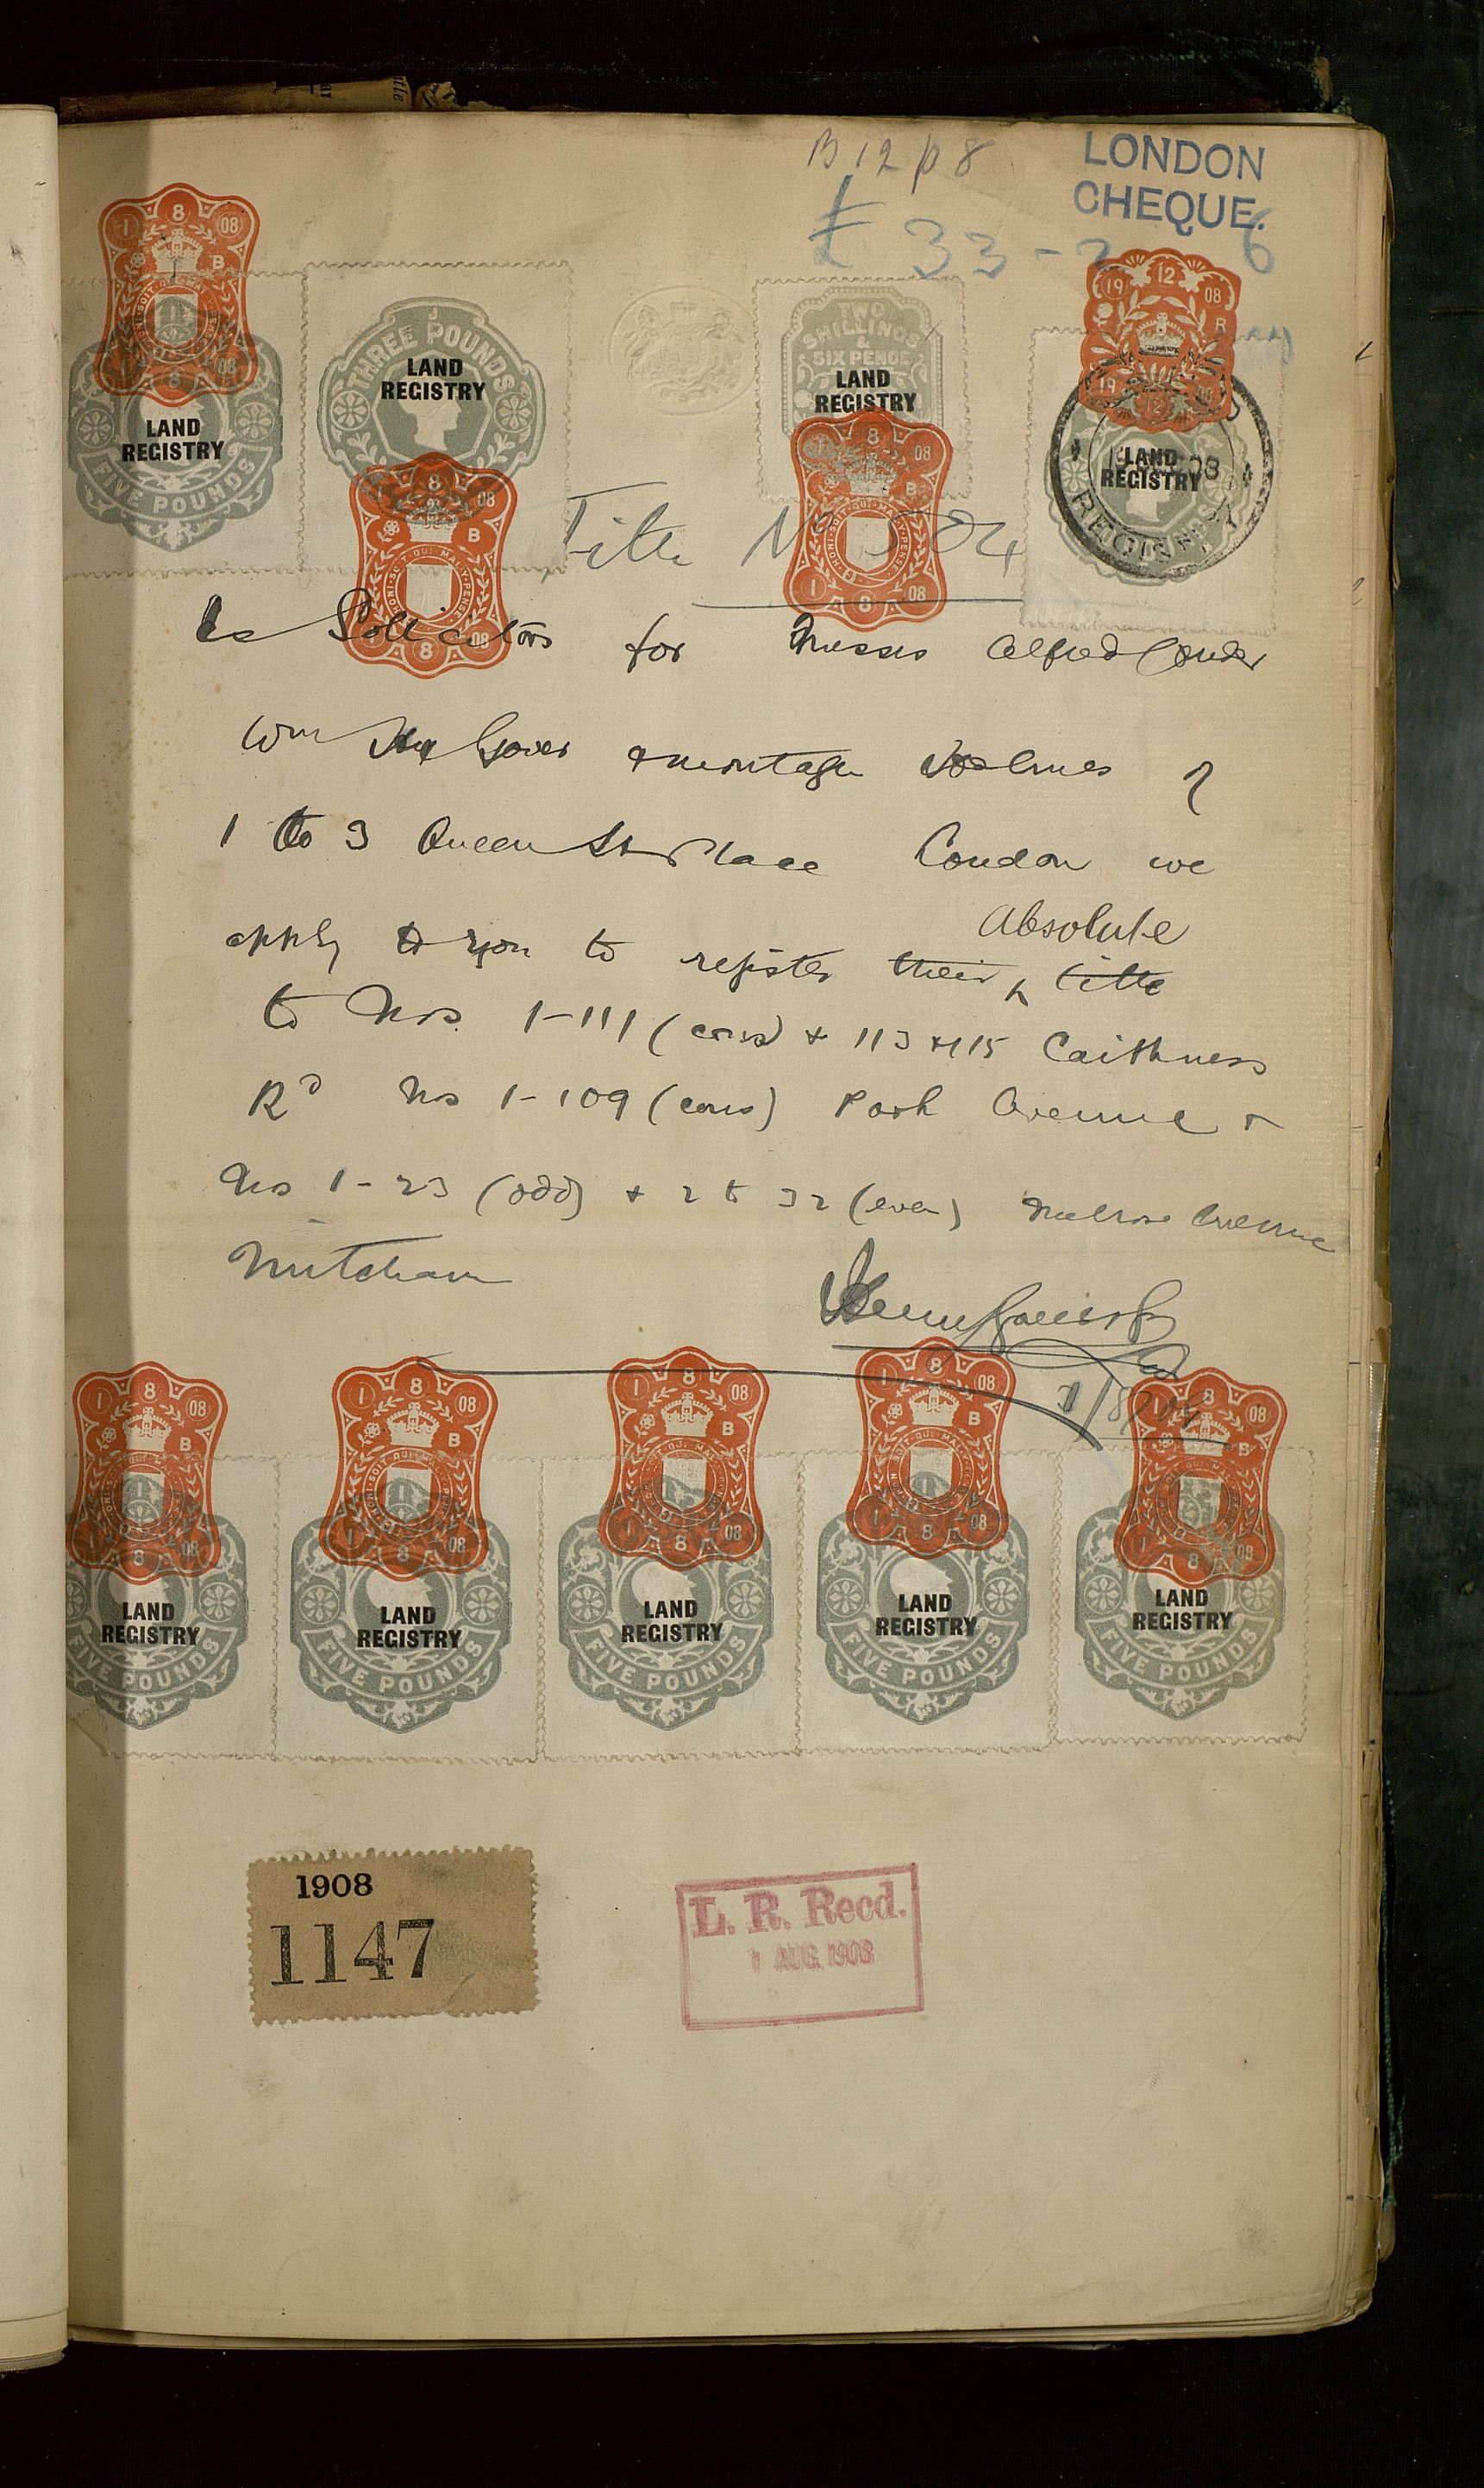 B 12 p 8
LONDON
CHEQUE.
£ 33 - 2 6
1 8 08
B
LAND
REGISTRY
FIVE POUNDS
THREE POUNDS
LAND
REGISTRY
1 8 08
B
TWO
SHILLINGS
&
SIX PENCE
LAND
REGISTRY
1 8 08
B
HONI·SOIT·QUI·MAL·Y·PENSE
19 12 08
R
LAND
REGISTRY
Title No 504
As Sollicitors for Messrs Alfred
Wm Gover & Montague Holmes of
1 to 3 Queen St Place London we
apply to you to register their absolute title
to Nos 1-111 (cons) & 113 & 115 Caithness
Rd Nos 1-109 (cons) Park Avenue &
Nos 1-23 (odd) & 2 to 32 (even) Melrose Avenue
Mitcham
1/8/08
1 8 08
B
1 8 08
B
1 8 08
B
1 8 08
B
1 8 08
B
LAND
REGISTRY
FIVE POUNDS
LAND
REGISTRY
FIVE POUNDS
LAND
REGISTRY
FIVE POUNDS
LAND
REGISTRY
FIVE POUNDS
LAND
REGISTRY
FIVE POUNDS
1908
1147
L. R. Recd.
1 AUG. 1908